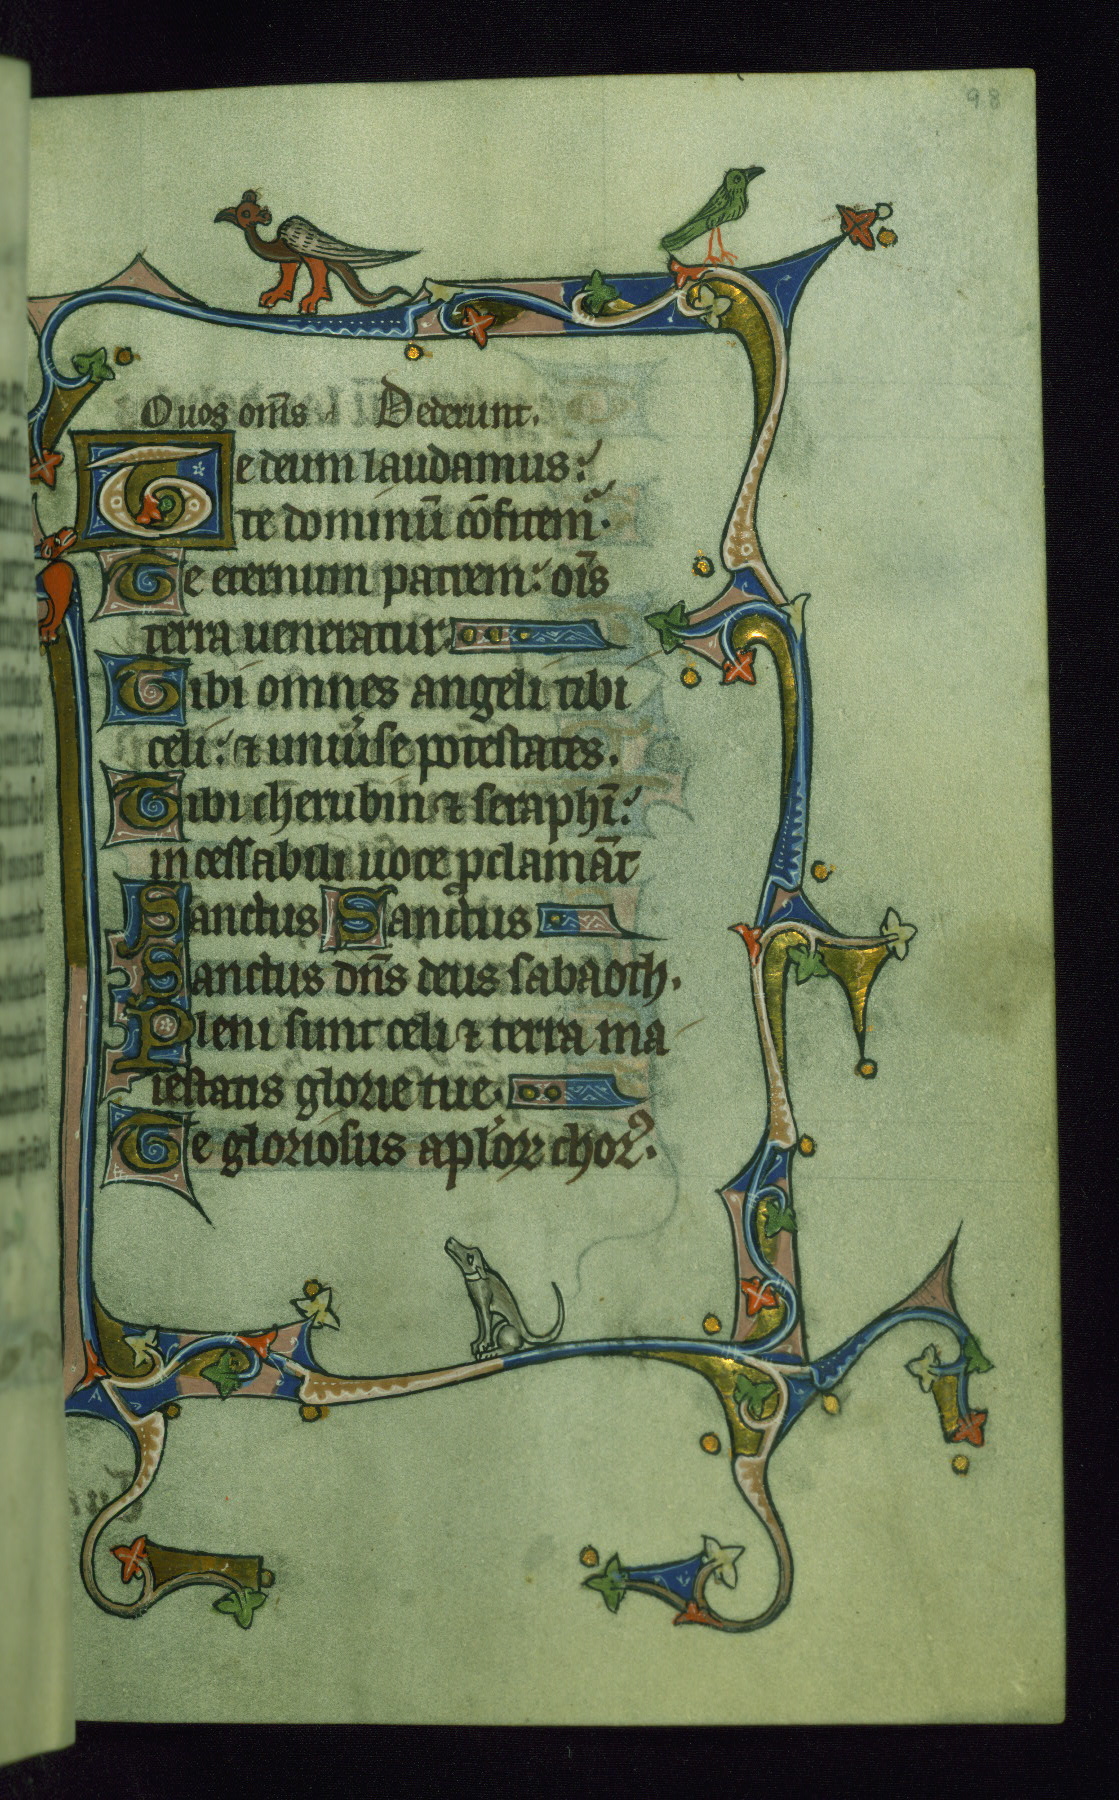 98
Quos om̄s Dederunt.
Te deum laudamus:
te dominū cōfitem̃.
Te eternum patrem: oīs
terra ueneratur.
Tibi omnes angeli tibi
celi: ⁊ uniũse potestates.
Tibi cherubin ⁊ seraphī:
incessabili uoce pclamāt
Sanctus Sanctus
Sanctus dn̄s deus sabaoth.
Pleni sunt celi ⁊ terra ma
iestatis glorie tue.
Te gloriosus apl'oꝝ chorꝰ.